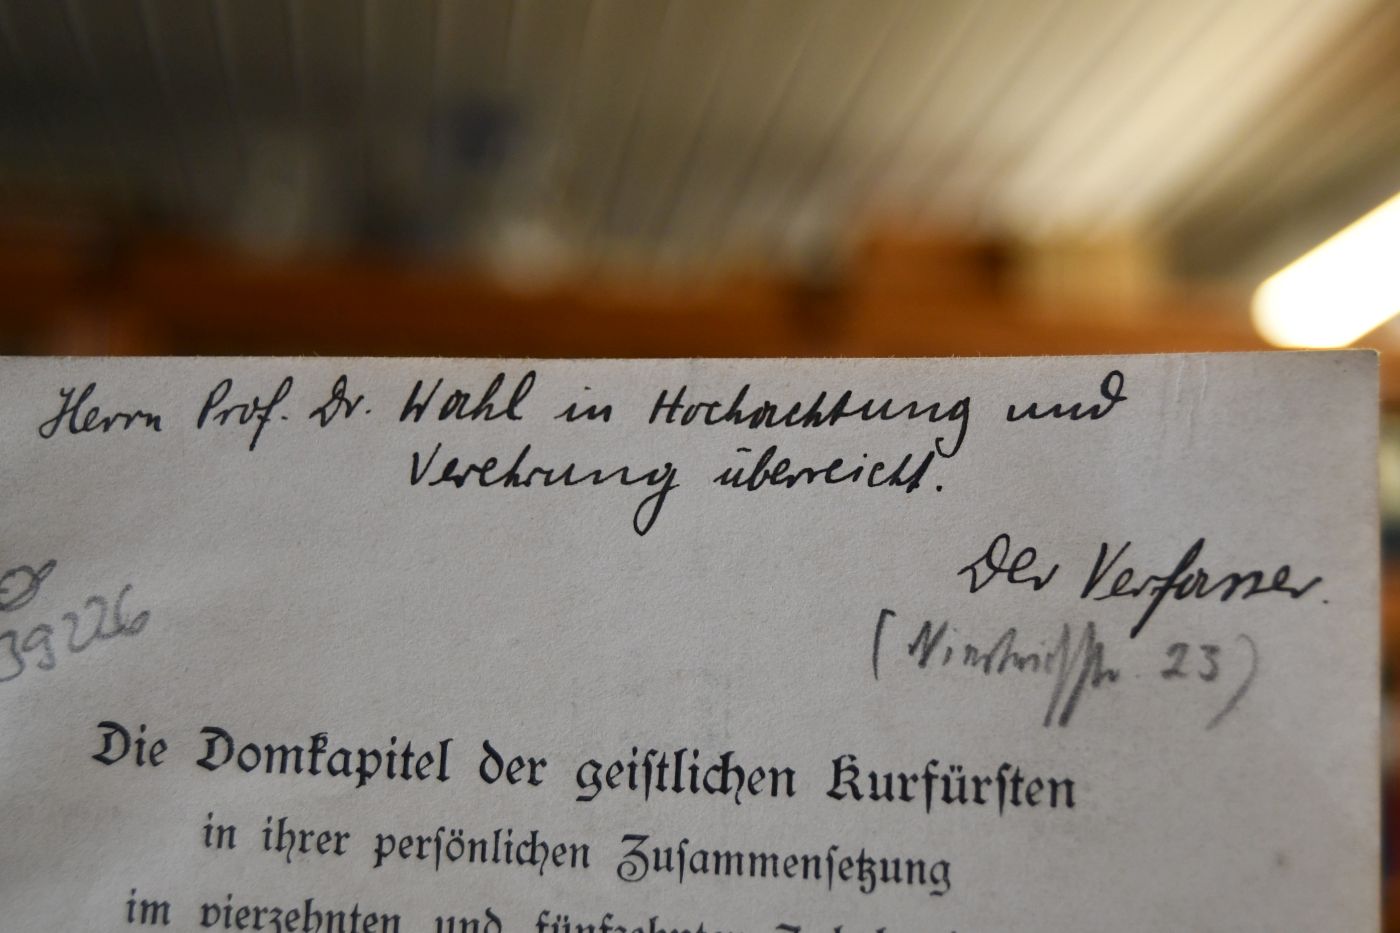 Herrn Prof. Dr. Wahl in Hochachtung und
Verehrung überreicht.
Der Verfasser.
39226
23)
Die Domkapitel der geistlichen Kurfürsten
in ihrer persönlichen Zusammensetzung
im vierzehnten und fünfzehnten